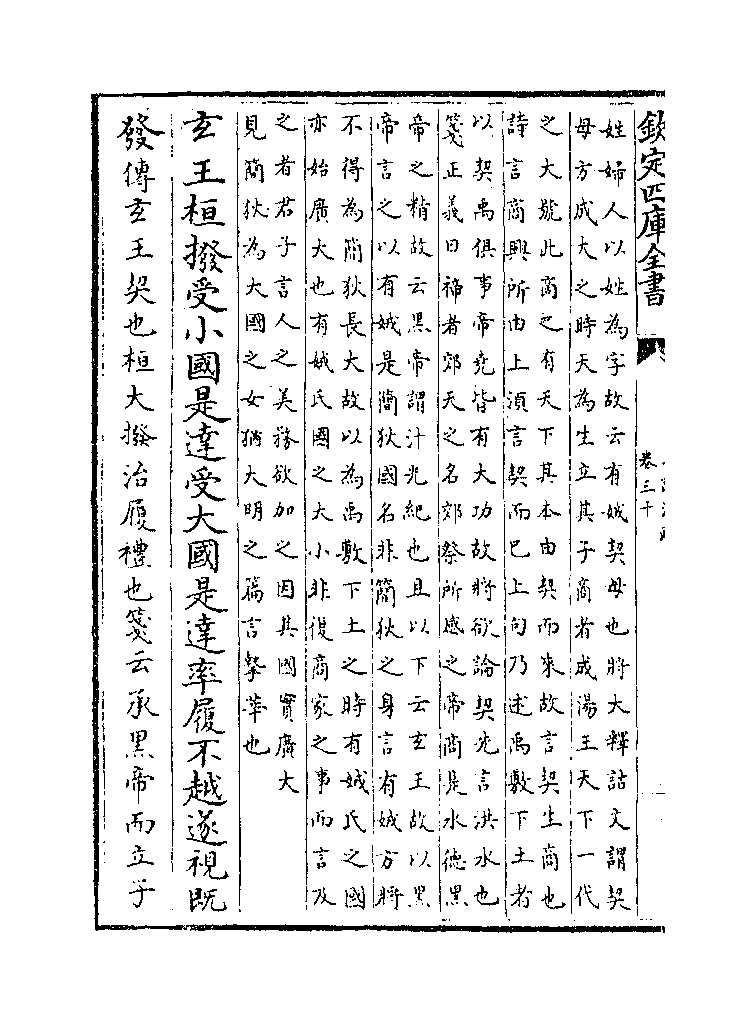 欽定四庫全書
卷三十
姓婦人以姓為字故云有娀契母也將大釋詁文謂契
母方成大之時天為生立其子商者成湯王天下一代
之大號此商之有天下其本由契而來故言契生商也
詩言商興所由上湏言契而已上句乃述禹敷下土者
以契禹俱事帝堯皆有大功故將欲論契先言洪水也
箋正義曰禘者郊天之名郊祭所感之帝商是水徳黒
帝之精故云黒帝謂汁光紀也且以下云玄王故以黒
帝言之以有娀是簡狄國名非簡狄之身言有娀方將
不得為簡狄長大故以為禹敷下土之時有娀氏之國
亦始廣大也有娀氏國之大小非復商家之事而言及
之者君子言人之美務欲加之因其國實廣大
見簡狄為大國之女猶大明之篇言摯莘也
玄王桓撥受小國是達受大國是達率履不越遂視既
發傳玄王契也桓大撥治履禮也箋云承黒帝而立子